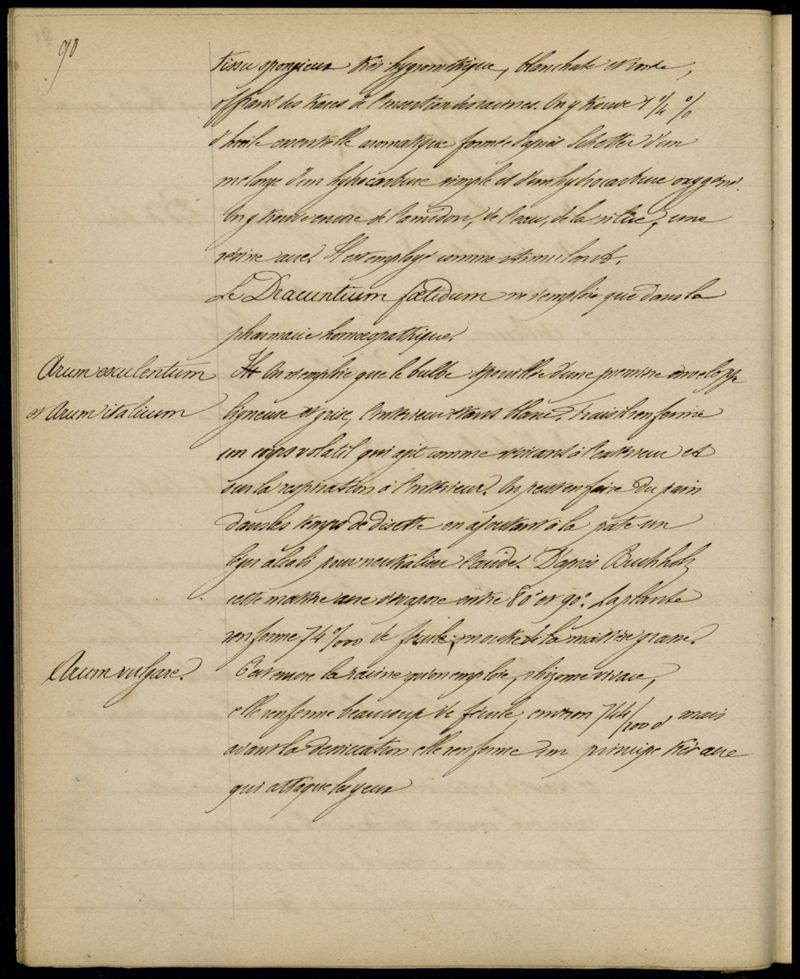 90
tissu spongieux très hygrometrique, blanchatre et rosée,
offrant des traces de l'insertion des racines. On y trouve 1 1/4 %
d'huile essentielle aromatique formée d'après Schetter d'un
melange d'un hydrocarbure simple et d'un hydrocarbure oxygéné.
On y trouve encore de l'amidon, de l'eau, de la silice, une
résine acre. Il est employé comme stimulant.
Le Dracuntium fœtidum ne s'emploie que dans la
pharmacie homœopathique.
Arum esculentum On n'emploie que le bulbe dépouillé d'une première enveloppe
et Arum italicum ligneuse et grise, l'intérieur étant blanc. Frais il renferme
un corps volatil qui agit comme vésicant à l'extérieur et
sur la respiration à l'intérieur. On peut en faire du pain
dans les temps de disette en ajoutant à la pâte un
léger alcali pour neutraliser l'acide. D'après Buchholz
cette matière acre s'évapore entre 80° et 90°. La plante
renferme 74 %00 de fécule, de la matière grasse.
Arum vulgare. C'est encore la racine qu'on emploie, rhizome vivace,
elle renferme beaucoup de fécule, environ 744/1000 mais
avant la dessiccation elle renferme un principe très acre
qui attaque les yeux